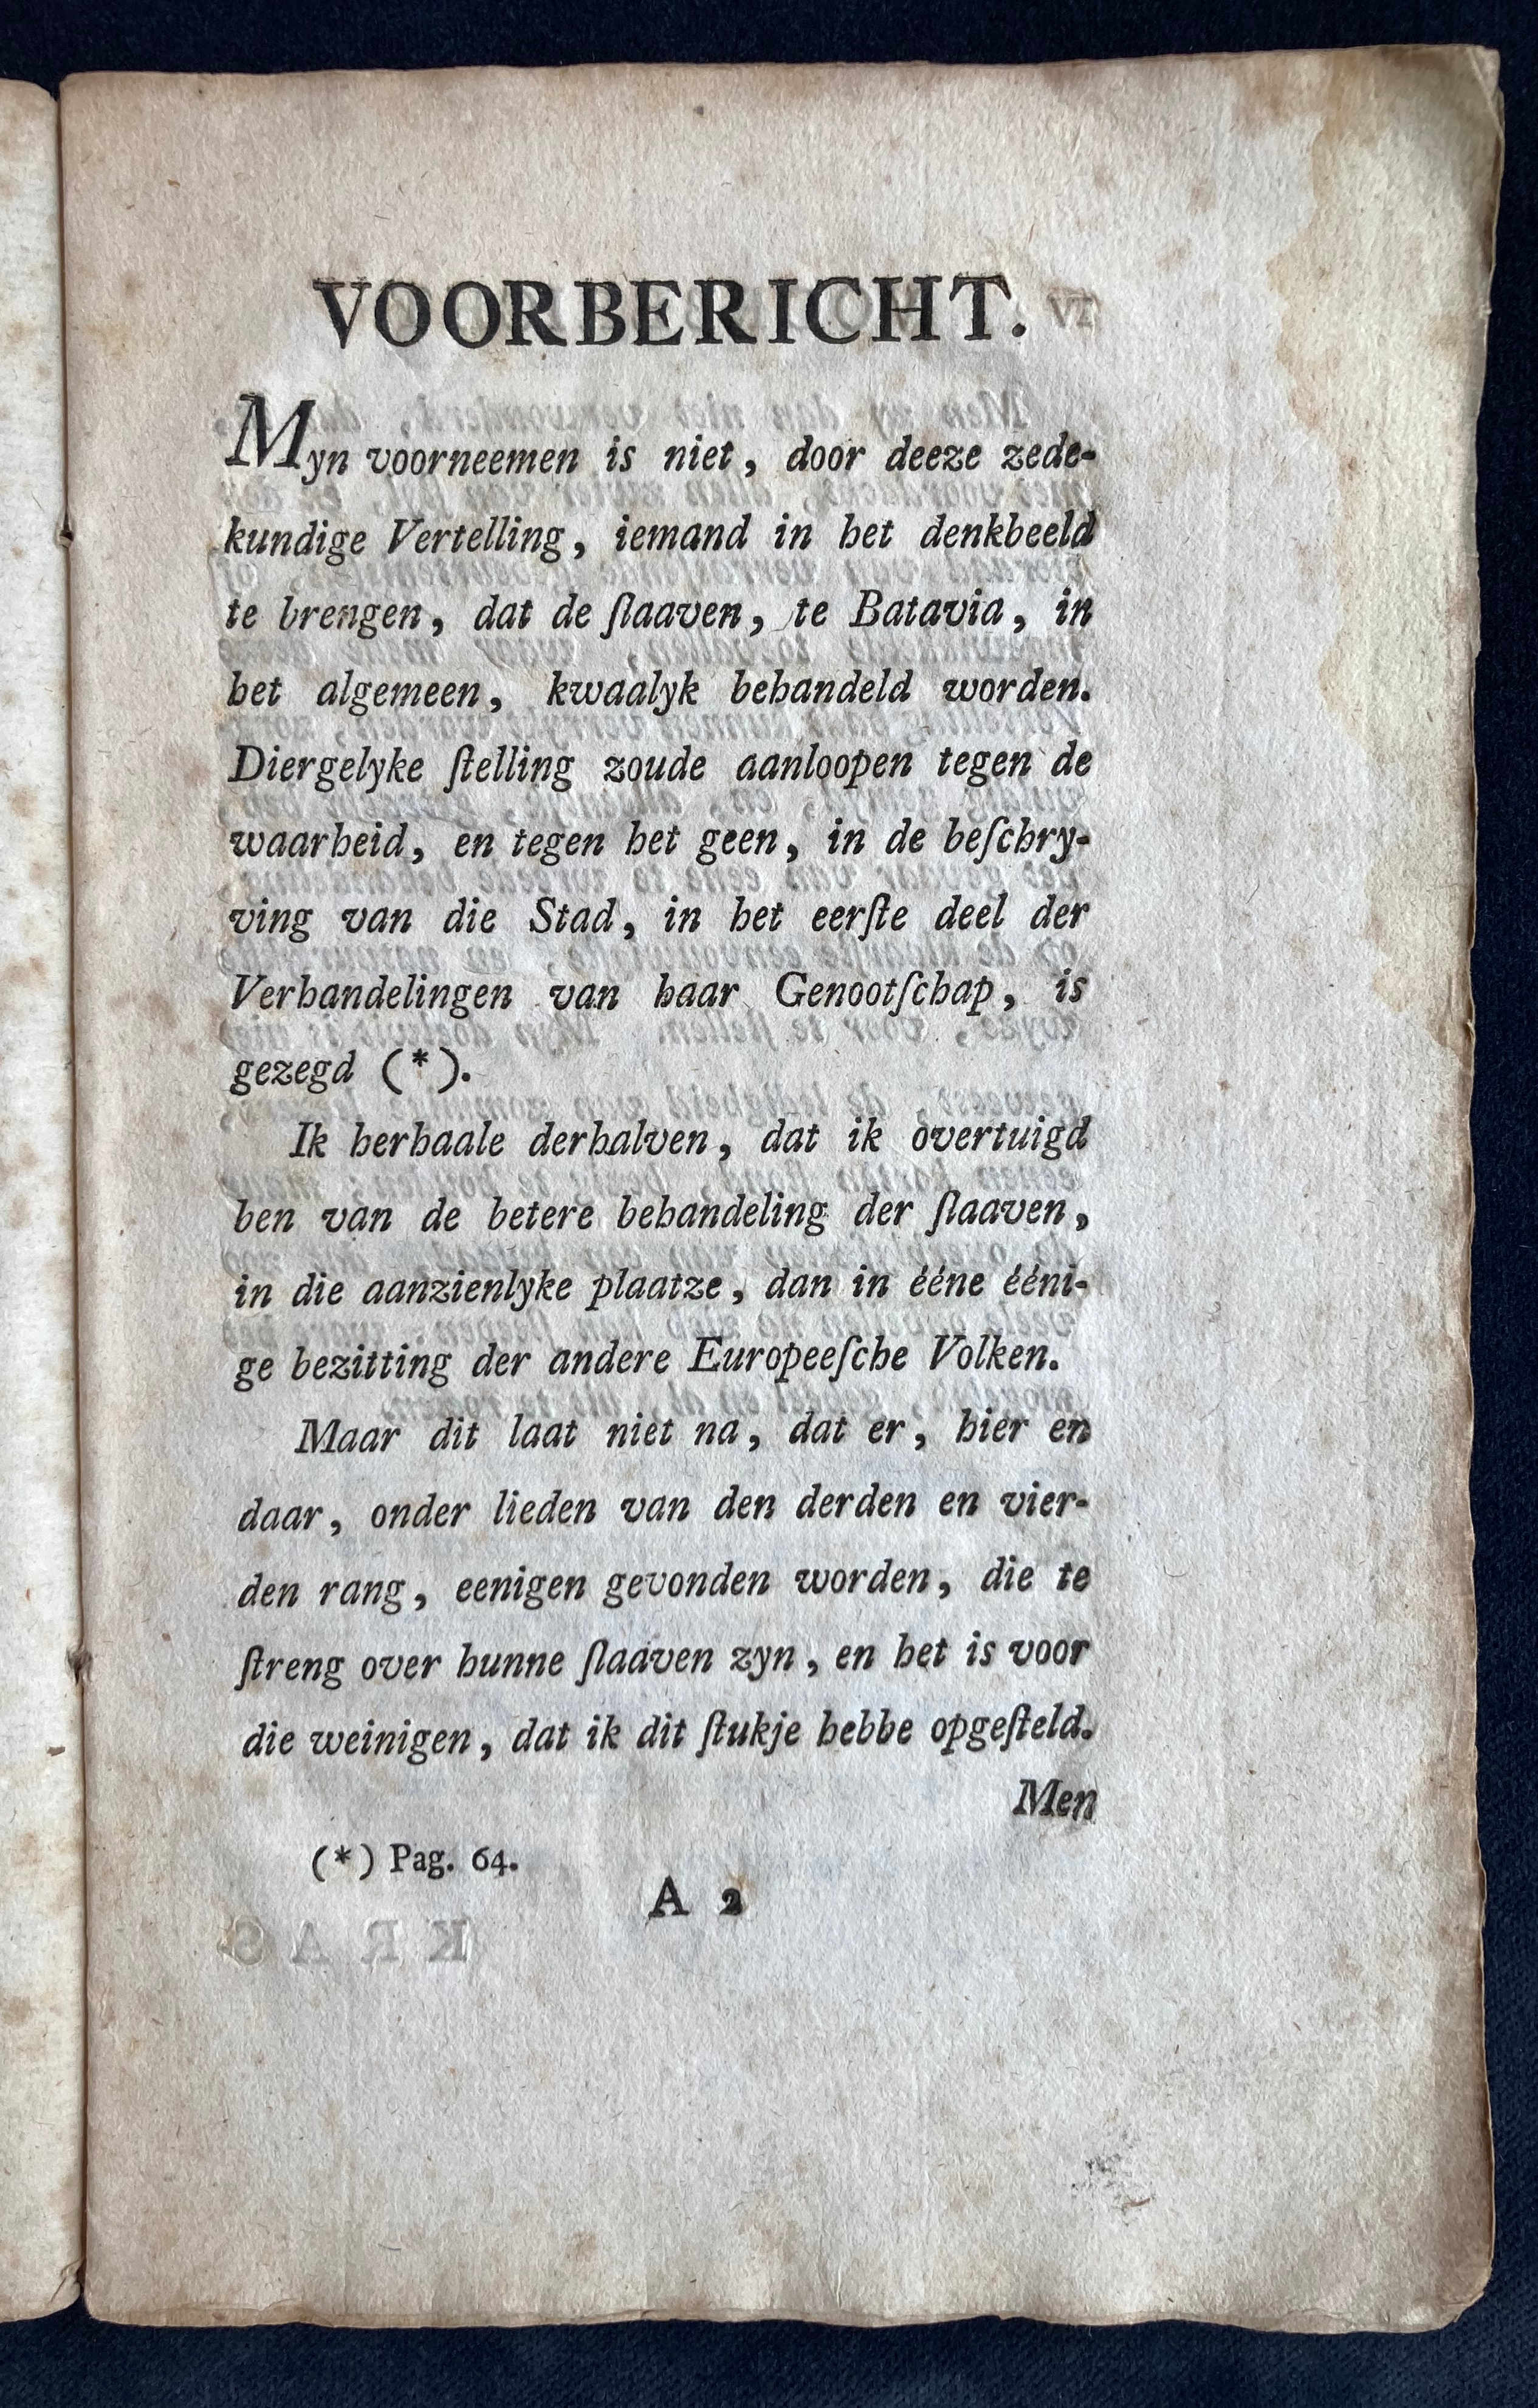 VOORBERICHT.
Myn voorneemen is niet, door deeze zede-
kundige Vertelling, iemand in het denkbeeld
te brengen, dat de ſlaaven, te Batavia, in
het algemeen, kwaalyk behandeld worden.
Diergelyke ſtelling zoude aanloopen tegen de
waarheid, en tegen het geen, in de beſchry-
ving van die Stad, in het eerſte deel der
Verhandelingen van haar Genootſchap, is
gezegd (*).
Ik herhaale derhalven, dat ik overtuigd
ben van de betere behandeling der ſlaaven,
in die aanzienlyke plaatze, dan in ééne ééni-
ge bezitting der andere Europeeſche Volken.
Maar dit laat niet na, dat er, hier en
daar, onder lieden van den derden en vier-
den rang, eenigen gevonden worden, die te
ſtreng over hunne ſlaaven zyn, en het is voor
die weinigen, dat ik dit ſtukje hebbe opgeſteld.
Men
(*) Pag. 64.
A 2